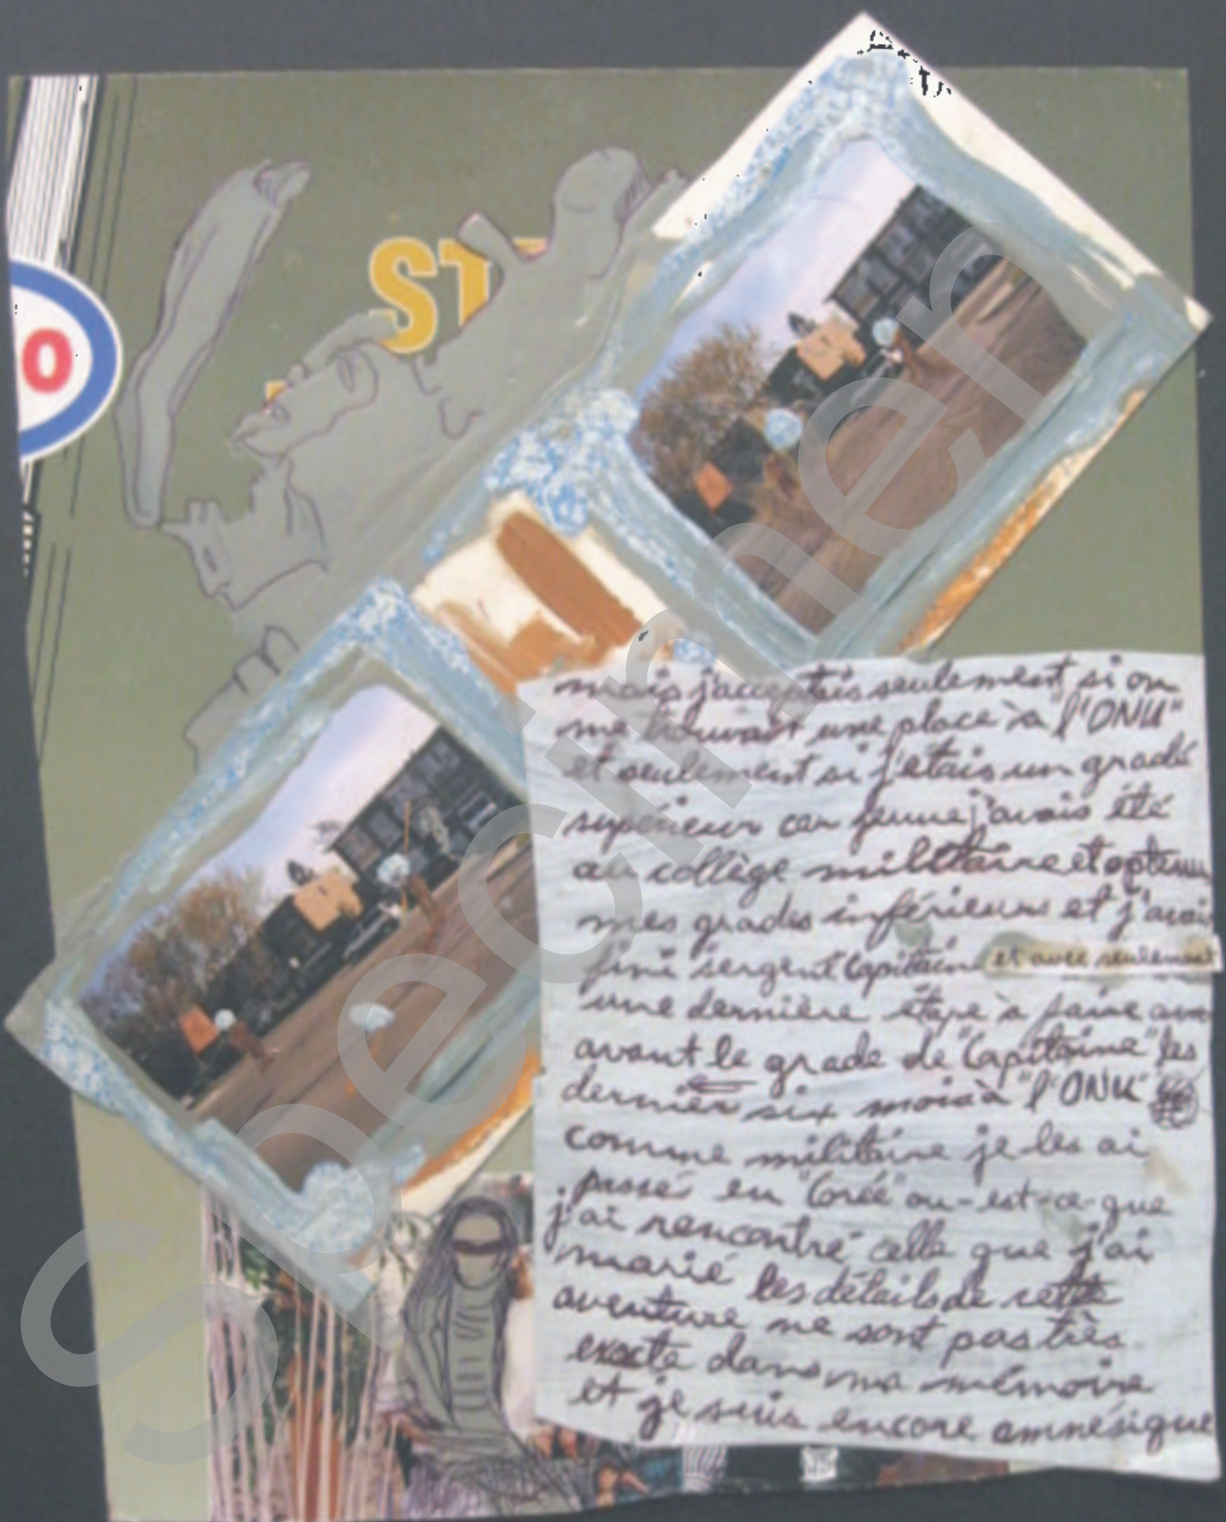 ST
O
mais j'acceptais seulement si on
me trouvait une place à "l'ONU"
et seulement si j'étais un gradé
supérieur car jeune j'avais été
au collège militaire et optenu
mes grades inférieurs et j'avais
fini sergent Capitaine et avec seulement
une dernière étape à faire
avant le grade de "Capitaine" les
dernier six mois à "l'ONU"
comme militaire je les ai
passés en "Corée" ou-est-ce-que
j'ai rencontré celle que j'ai
marié les détails de cette
aventure ne sont pas très
exacte dans ma mémoire
et je suis encore amnésique
Specimen